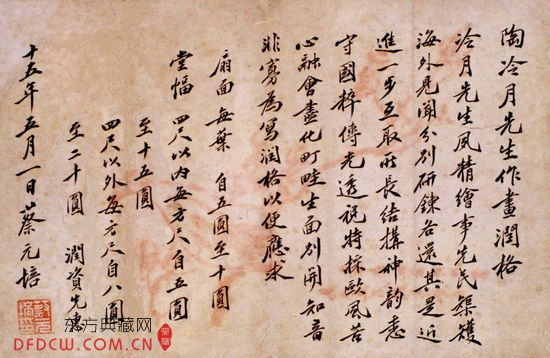 陶冷月先生作畫潤格
冷月先生夙精繪事先民榘矱
海外見聞分別研鍊各還其是近
進一步互取所長結構神韵悉
守國粹傳光透視特採歐風苦
心融會盡化町畦生面別開知音
非寡為寫潤格以便應求
扇面 每葉 自五圓至十圓
堂幅 四尺以內每方尺自五圓
至十五圓
四尺以外每方尺自八圓
至二十圓 潤資先惠
十五年五月一日蔡元培
东方典藏网
DFDCW.COM.CN